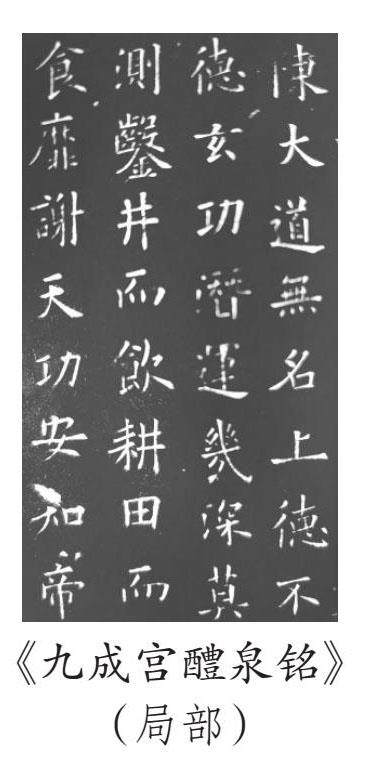 陳大道無名上德不
德玄功潛運幾深莫
測鑿井而飲耕田而
食靡謝天功安知帝
《九成宫醴泉铭》
（局部）